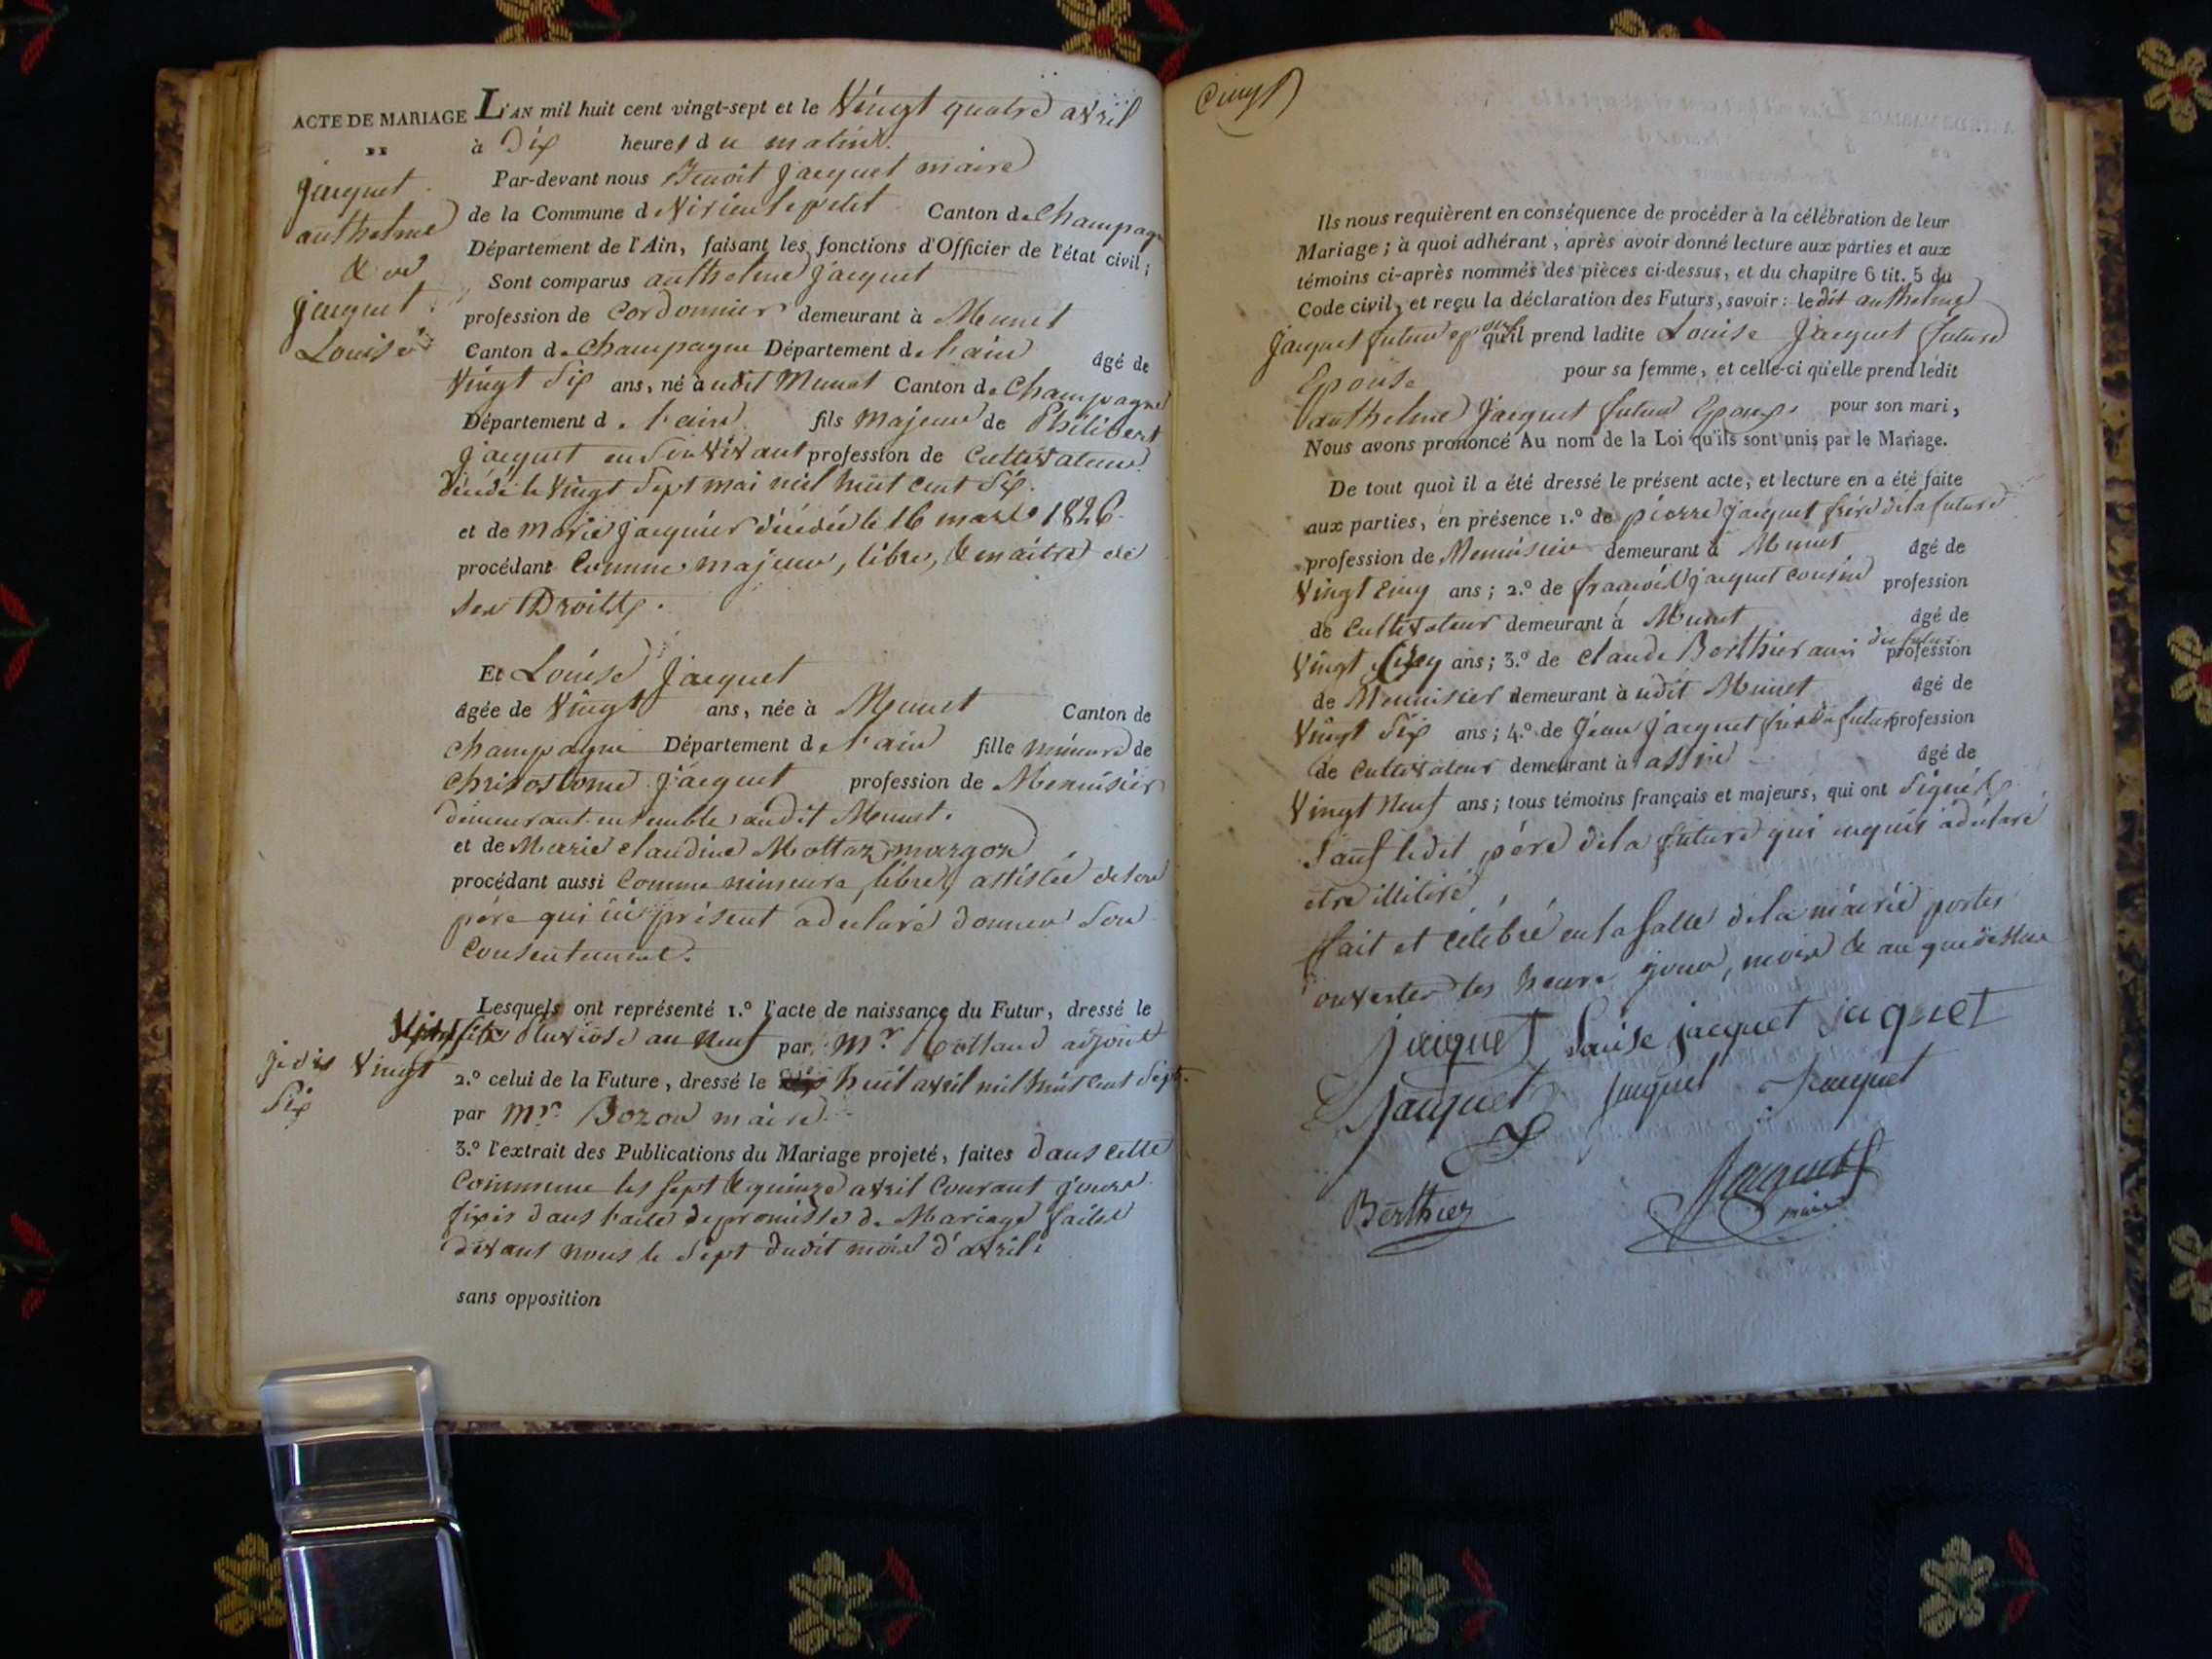 ACTE DE MARIAGE
Jacquet
anthelme
&
Jacquet
Louise
L'AN mil huit cent vingt-sept et le Vingt quatre avril
à Dix heures du matin.
Par-devant nous Benoit Jacquet maire
de la Commune de Virieu le petit Canton de Champagne
Département de l'Ain, faisant les fonctions d'Officier de l'état civil;
Sont comparus anthelme Jacquet
profession de Cordonnier demeurant à Munet
Canton de Champagne Département de l'ain âgé de
Vingt Six ans, né à udit Munet Canton de Champagne
Département de l'ain fils Majeur de Philibert
Jacquet en Son Vivant profession de Cultivateur
Décédé le Vingt Sept mai mil huit cent Dix.
et de Marie Jacquier décédée le 16 mars 1826.
procédant Comme majeur, libre, & maitre de
ses Droits.
Et Louise Jacquet
âgée de Vingt ans, née à Munet Canton de
Champagne Département de l'ain fille mineure de
Chrisostome Jacquet profession de Menuisier
demeurant ensemble audit Munet.
et de Marie Claudine Mottaz margon
procédant aussi Comme mineure, libre, assistée de son
père qui ici présent a déclaré donner Son
Consentement.
Lesquels ont représenté 1.º l'acte de naissance du Futur, dressé le
pluviose an Neuf par Mr. adjoint
je dis Vingt
Six
2.º celui de la Future, dressé le huit avril mil huit cent Sept.
par Mr. Bozon maire.
3.º l'extrait des Publications du Mariage projeté, faites dans cette
Commune les Sept & quinze avril Courant jours
fixés dans l'acte de promesse de Mariage faites
devant nous le Sept dudit mois d'avril.
sans opposition
Cinq
Ils nous requièrent en conséquence de procéder à la célébration de leur
Mariage; à quoi adhérant, après avoir donné lecture aux parties et aux
témoins ci-après nommés des pièces ci-dessus, et du chapitre 6 tit. 5 du
Code civil, et reçu la déclaration des Futurs, savoir: ledit anthelme
Jacquet futur epoux qu'il prend ladite Louise Jacquet future
Epouse pour sa femme, et celle-ci qu'elle prend ledit
anthelme Jacquet futur Epoux pour son mari,
Nous avons prononcé Au nom de la Loi qu'ils sont unis par le Mariage.
De tout quoi il a été dressé le présent acte, et lecture en a été faite
aux parties, en présence 1.º de pierre Jacquet frère de la future
profession de Menuisier demeurant à Munet âgé de
Vingt Cinq ans; 2.º de françois Jacquet Cousin profession
de Cultivateur demeurant à Munet âgé de
Vingt Cinq ans; 3.º de Claude Berthier ami du futur profession
de Menuisier demeurant à udit Munet âgé de
Vingt Six ans; 4.º de Jean Jacquet frère du futur profession
de Cultivateur demeurant à assin âgé de
Vingt Neuf ans; tous témoins français et majeurs, qui ont Signé
Sauf ledit père de la future qui enquis a déclaré
etre illitiré
fait et Célébré en la Salle de la mairie portes
ouvertes les heure jour, mois & an que dessus
Jacquet Louise jacquet jaquet
Jacquet Jacquet Jacquet
Berthier Jacquet
maire